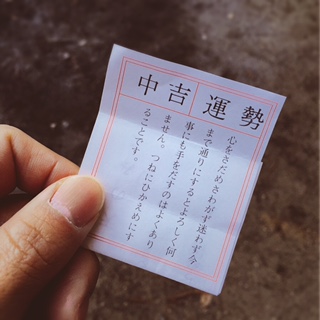 中吉運勢
心をさだめさわがず迷わず今
まで通りにするとよろしく何
事にも手をだすのはよくあり
ません。つねにひかえめにす
ることです。